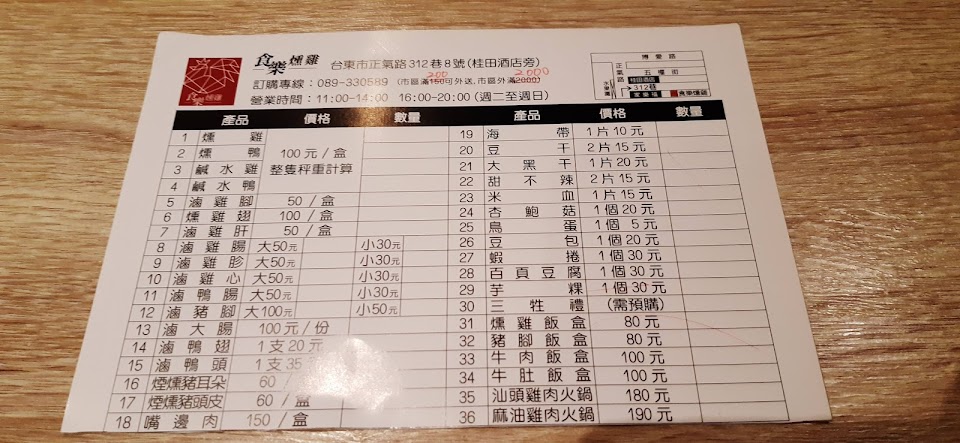 食樂燻雞 台東市正氣路312巷8號(桂田酒店旁)
訂購專線：089-330589 (市區滿150可外送,市區外滿2000)
200 2000
營業時間：11:00-14:00 16:00-20:00 (週二至週日)
食樂燻雞
博愛路
正氣路
五權街
桂田酒店
312巷
家樂福
食樂燻雞
產品 價格 數量
1 燻雞
2 燻鴨 100元/盒
3 鹹水雞 整隻秤重計算
4 鹹水鴨
5 滷雞腳 50/盒
6 燻雞翅 100/盒
7 滷雞肝 50/盒
8 滷雞腸 大50元 小30元
9 滷雞胗 大50元 小30元
10 滷雞心 大50元 小30元
11 滷鴨腸 大50元 小30元
12 滷豬腳 大100元 小50元
13 滷大腸 100元/份
14 滷鴨翅 1支20元
15 滷鴨頭 1支35
16 煙燻豬耳朵 60/
17 煙燻豬頭皮 60/盒
18 嘴邊肉 150/盒
產品 價格 數量
19 海帶 1片10元
20 豆干 2片15元
21 大黑干 1片20元
22 甜不辣 2片15元
23 米血 1片15元
24 杏鮑菇 1個20元
25 鳥蛋 1個5元
26 豆包 1個20元
27 蝦捲 1個30元
28 百頁豆腐 1個30元
29 芋粿 1個30元
30 三牲禮 (需預購)
31 燻雞飯盒 80元
32 豬腳飯盒 80元
33 牛肉飯盒 100元
34 牛肚飯盒 100元
35 汕頭雞肉火鍋 180元
36 麻油雞肉火鍋 190元